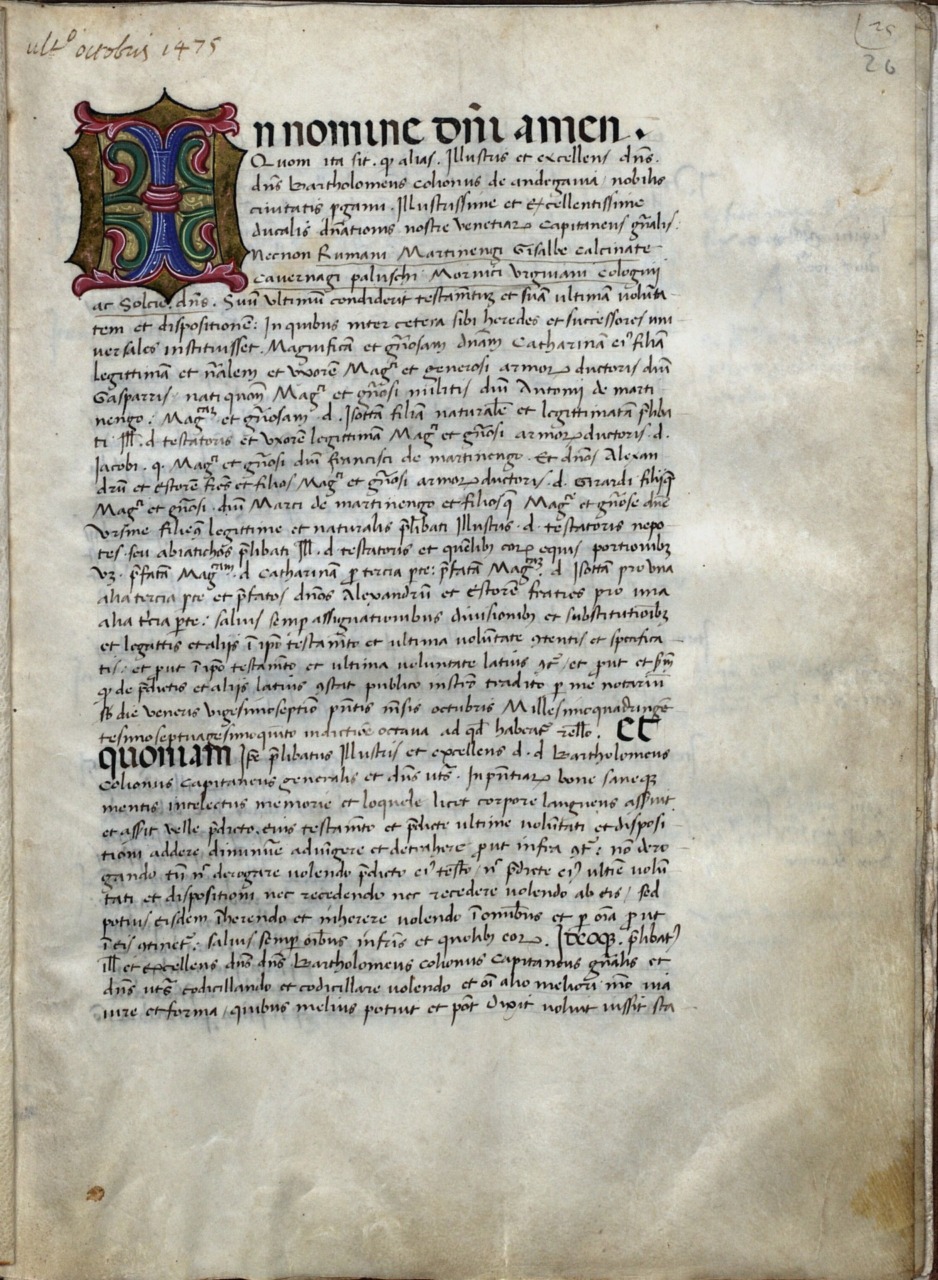 ult.o octobris 1475
25
26
In nomine dñi amen .
Quom ita sit . q̃ alias . Illustris et excellens dñs .
dñs Bartholomeus Colionus de andegauia / nobilis
ciuitatis p̱gami . Illustrissime et Excellentissime
ducalis dñationis nostre Venetiaꝝ Capitaneus gñalis .
Necnon Rumani Martinengi Gisalbe Calcinate
Cauernagi paluschi Mornici Vrgniani Cologni
ac Solcie . dñs . Suũ Vltimũ condiderit testam̃tuʒ et suã ultimam volũta
tem et dispositionẽ : In quibus inter cetera sibi heredes et successores uni
uersales instituisset . Magnificã et gñosam dñam Catharinã ei⁹ filiã
legittimam et nãlem et vxorẽ Mag.ci et generosi armoꝝ ductoris dñi
Gasparris / nati quonᷓ Mag.ci et gñosi militis dñi Antonii de marti
nengo . Mag.cam et gñosam . d . Isottã filiã naturalẽ et legittimatã p̃liba
ti . Ill . d testatoris et vxorẽ legittimã Mag.ci et gñosi armoꝝ ductoris . d .
Jacobi . q . Mag.ci et gñosi dñi francisci de martinengo . Et dños Alexan
drũ et Estorẽ fr̃es et filios Mag.ci et gñosi armoꝝ ductoris . d . Girardi filijq̃
Mag.ci et gñosi . dñi Marci de martinengo et filiosq̃ Mag.ce et gñose dñe
Vrsine filieq̃ legittime et naturalis p̃libati Illustris . d . testatoris nepo
tes . seu abiatichos p̃libati Ill . d testatoris et quẽlibʒ eoꝝ equis portionibʒ
vʒ . p̃fatã Mag.cam . d Catharinã ꝓ tercia p̱te : p̃fatã Mag.cam . d Isottã pro vna
alia tercia p̱te et p̃fatos dños Alexandrũ et Estorẽ fratres pro una
alia t̃cia p̱te : saluis semp̱ assignationibus diuisionibʒ et substitutionibʒ
et legattis et alijs ĩ ip̃o testam̃to et ultima volũtate ꝯtentis et specifica
tis : et put ĩ ip̃o testam̃to et ultima voluntate latius ꝯt̃ / et put et
q̃ de p̃dictis et alijs latius ꝯstat publico instr̃o tradito p̱ me notariũ
sb̃ die veneris vigesimoseptĩo p̃ntis m̃sis octubris Millesimoquadringẽ
tesimoseptuagesimoquito indictiõe octaua ad qd̃ habeat̃ rel̃lo . Et
quoniam Ip̃e p̃libatus Illustris et excellens d . d Bartholomeus
Colionus Capitaneus generalis et dñs ut.s̃ . In p̃ntiaꝝ bone saneqʒ
mentis / intelectus memorie et loquele licet corpore languens assit
et assit velle p̃dicto . eius testam̃to et p̃dicte ultime volũtati et disposi
tioni addere / diminuẽ adiũgere et detrahere / ꝓut infra ꝯt̃ : nõ dero
gando tñ n.c derogare volendo p̃dicto ei⁹ test̃o / n.c p̃dicte ei⁹ ultĩe volũ
tati et dispositioni nec recedendo nec recedere volendo ab eis / sed
potius / eisdem ĩherendo et inherere volendo ĩ omĩbus et p̱ oĩa ꝓut
ĩ eis ꝯtinet̃ . saluis semp̱ oĩbus infr̃is et quolibʒ eoꝝ . Ideoqʒ . p̃libat⁹
Ill̃ et Excellens dñs dñs Bartholomeus Colionus Capitaneus gñalis et
dñs ut.s̃ codicillando et codicillare volendo et oĩ alio meliori mõ uia
iure et forma / quibus melius potuit et põt Dixit voluit iussit sta